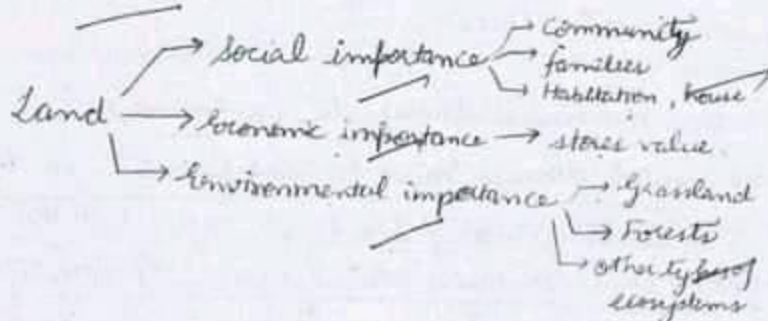 Social importance
community
families
Habitation, house
Land
Economic importance
stores value
Environmental importance
Grassland
Forests
other types of
ecosystems